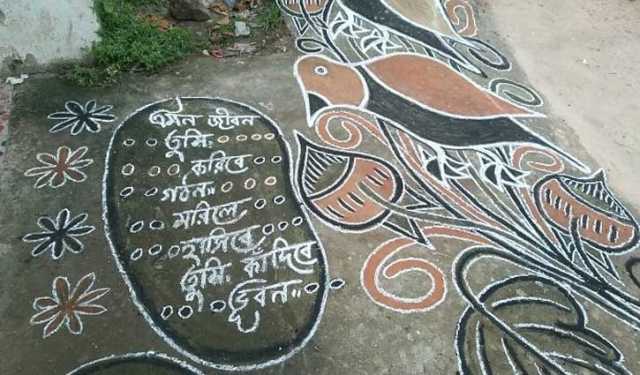 এমন জীবন
তুমি
করিবে
গঠন..
মরিলে
হাসিবে
তুমি. কাঁদিবে
ভুবন..